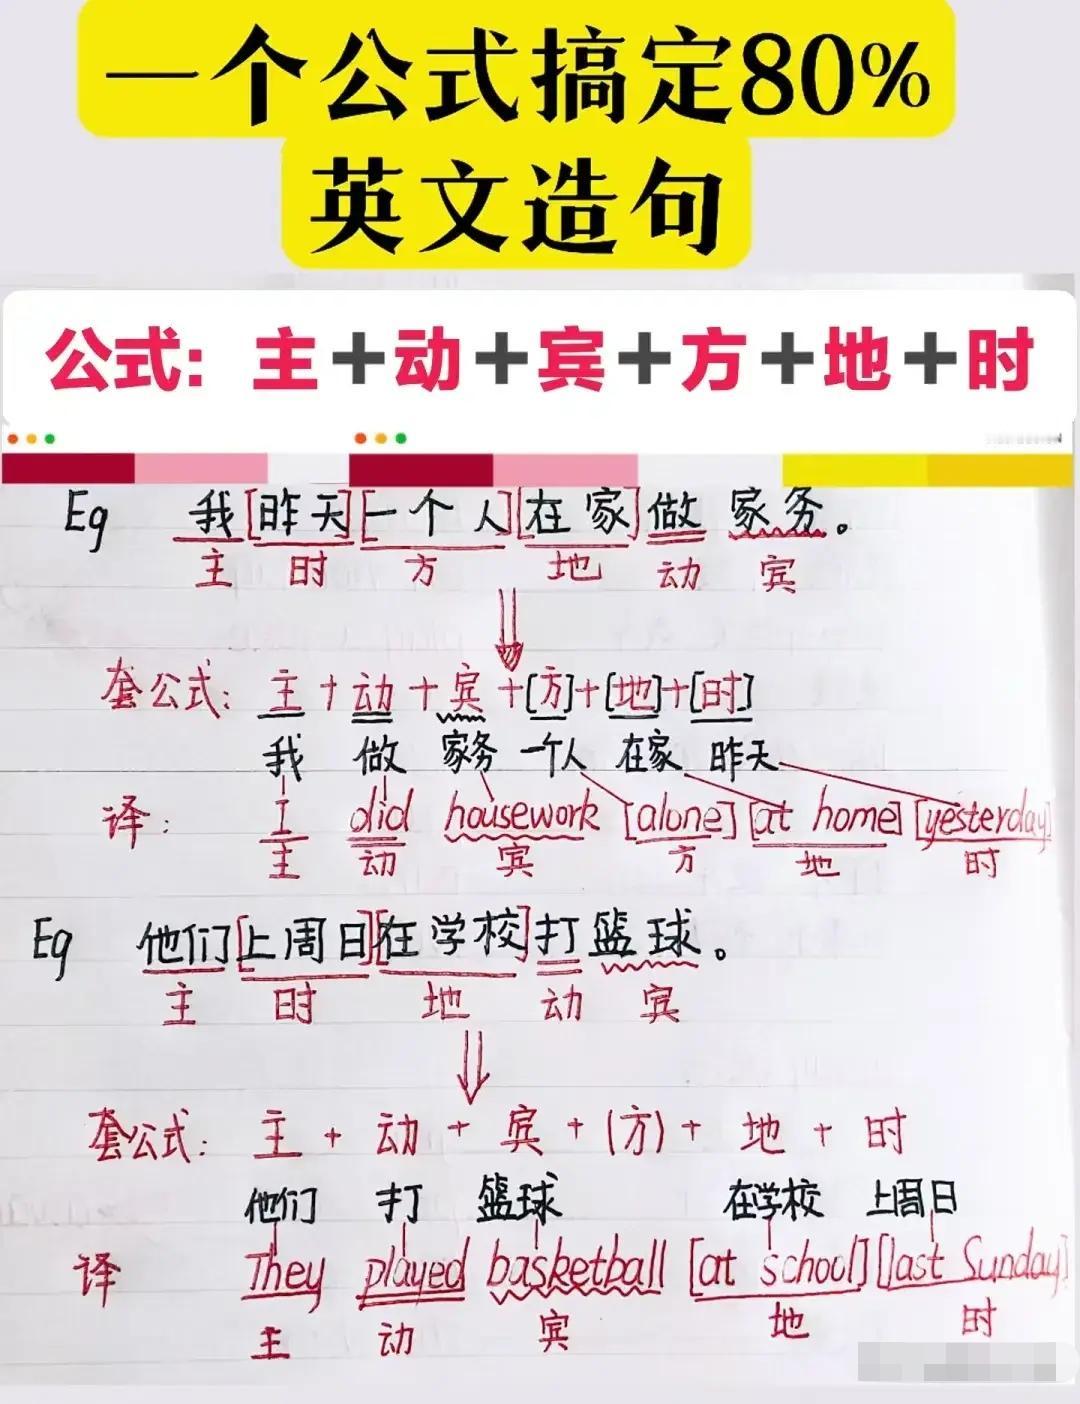 一个公式搞定80%
英文造句
公式：主+动+宾+方+地+时
Eg 我[昨天][一个人][在家]做 家务。
主 时 方 地 动 宾
套公式：主+动+宾+[方]+[地]+[时]
我 做 家务 一个人 在家 昨天
译： I did housework [alone] [at home] [yesterday]
主 动 宾 方 地 时
Eg 他们[上周日][在学校]打篮球。
主 时 地 动 宾
套公式：主+动+宾+(方)+地+时
他们 打 篮球 在学校 上周日
译 They played basketball [at school] [last Sunday]
主 动 宾 地 时